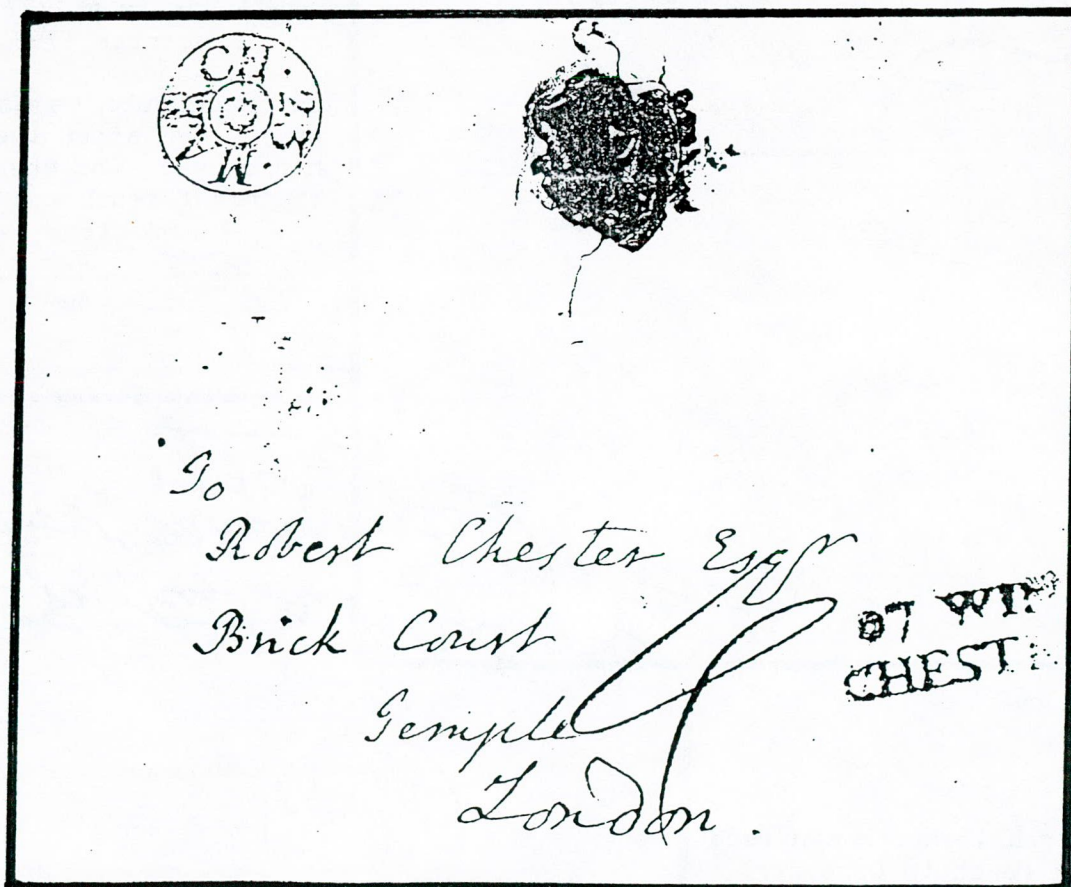 To
Robert Chester Esqr
Brick Court
Temple
London.
67 WIN
CHESTE